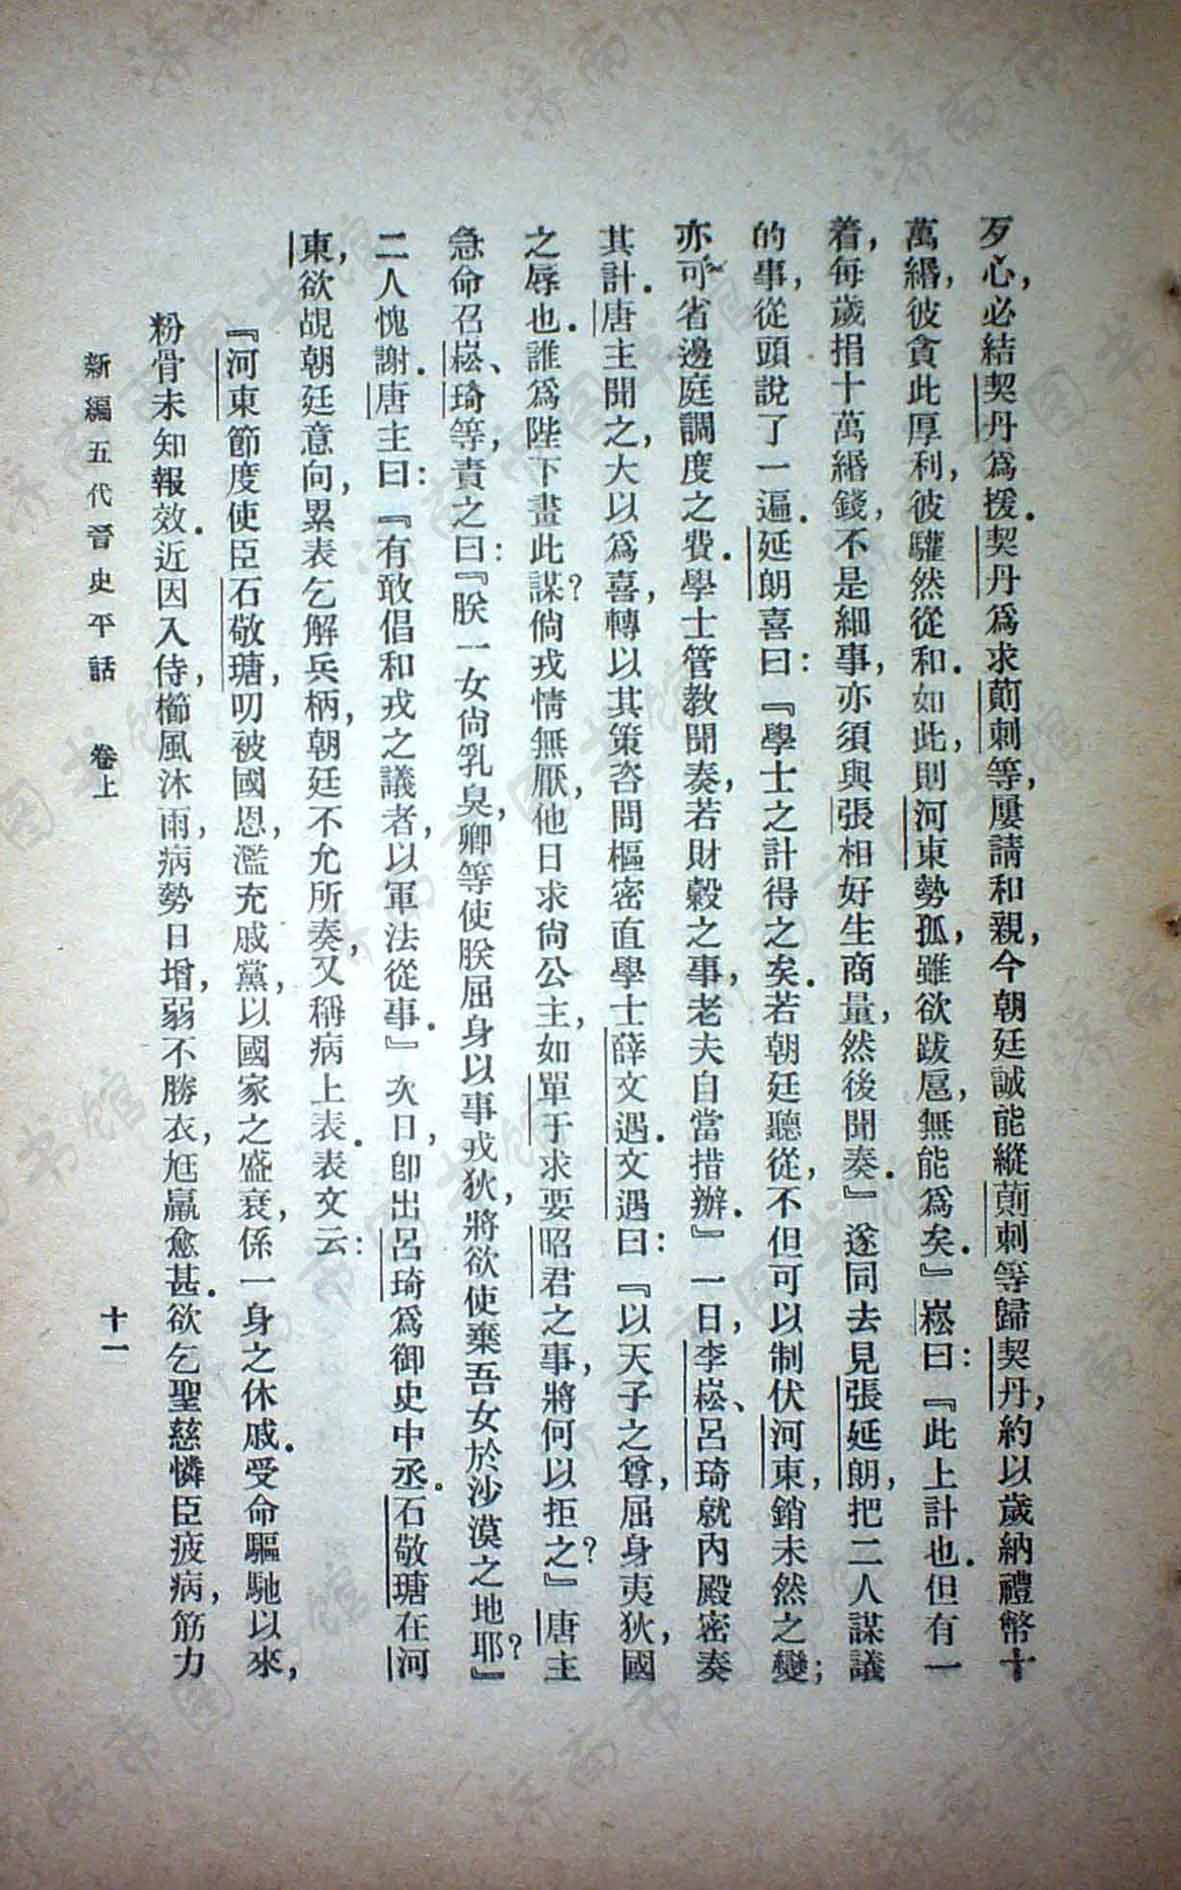 歹心，必結契丹爲援．契丹爲求萴刺等，屢請和親，今朝廷誠能縱萴刺等歸契丹，約以歲納禮幣十
萬緡，彼貪此厚利，彼驩然從和．如此，則河東勢孤，雖欲跋扈，無能爲矣．』崧曰：『此上計也．但有一
着，每歲捐十萬緡錢，不是細事，亦須與張相好生商量，然後聞奏．』遂同去見張延朗，把二人謀議
的事，從頭說了一遍．延朗喜曰：『學士之計得之矣．若朝廷聽從，不但可以制伏河東，銷未然之變；
亦可省邊庭調度之費．學士管教聞奏，若財穀之事，老夫自當措辦．』一日，李崧、呂琦就內殿密奏
其計．唐主聞之，大以爲喜，轉以其策咨問樞密直學士薛文遇．文遇曰：『以天子之尊，屈身夷狄，國
之辱也．誰爲陛下畫此謀？倘戎情無厭，他日求尙公主，如單于求要昭君之事，將何以拒之？』唐主
急命召崧、琦等，責之曰：『朕一女尙乳臭，卿等使朕屈身以事戎狄，將欲使棄吾女於沙漠之地耶？』
二人愧謝．唐主曰：『有敢倡和戎之議者，以軍法從事．』次日，卽出呂琦爲御史中丞．石敬瑭在河
東，欲覘朝廷意向，累表乞解兵柄，朝廷不允所奏，又稱病上表．表文云：
『河東節度使臣石敬瑭，叨被國恩，濫充戚黨，以國家之盛衰，係一身之休戚．受命驅馳以來，
粉骨未知報效．近因入侍，櫛風沐雨，病勢日增，弱不勝衣，尫羸愈甚．欲乞聖慈憐臣疲病，筋力
新編五代晉史平話　卷上　十一